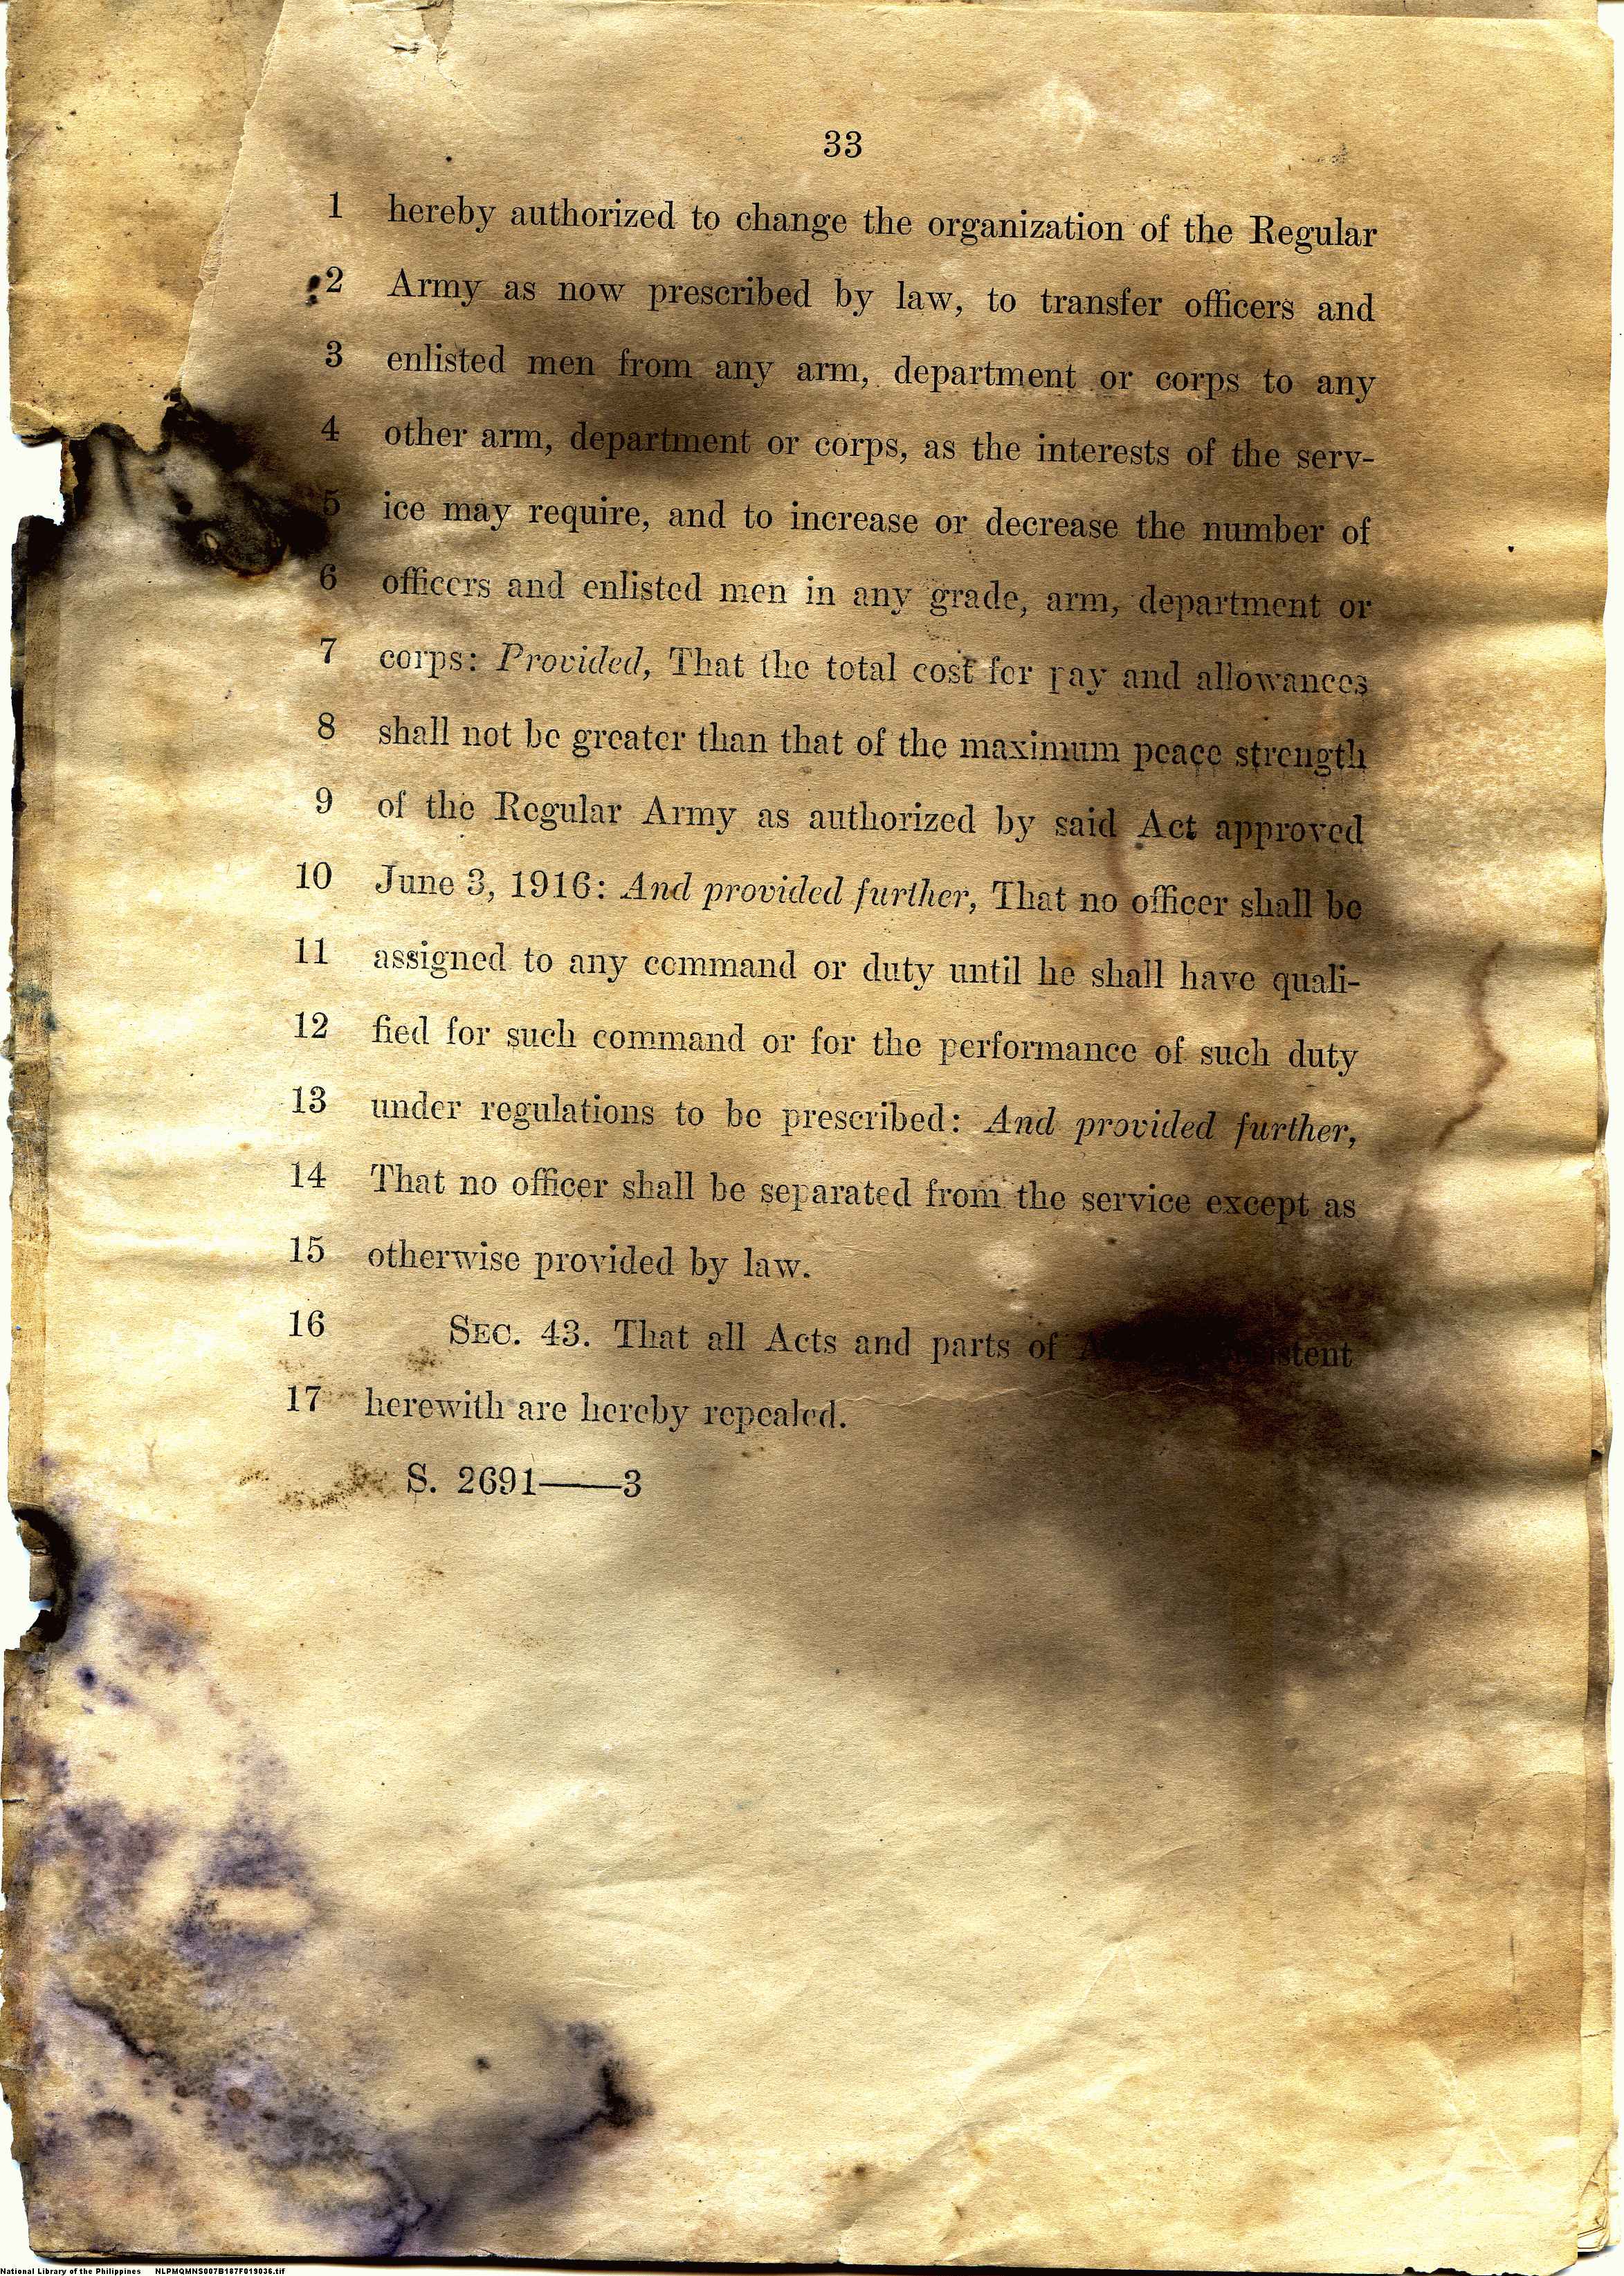 33
1 hereby authorized to change the organization of the Regular
2 Army as now prescribed by law, to transfer officers and
3 enlisted men from any arm, department or corps to any
4 other arm, department or corps, as the interests of the serv-
5 ice may require, and to increase or decrease the number of
6 officers and enlisted men in any grade, arm, department or
7 corps: Provided, That the total cost for pay and allowances
8 shall not be greater than that of the maximum peace strength
9 of the Regular Army as authorized by said Act approved
10 June 3, 1916: And provided further, That no officer shall be
11 assigned to any command or duty until he shall have quali-
12 fied for such command or for the performance of such duty
13 under regulations to be prescribed: And provided further,
14 That no officer shall be separated from the service except as
15 otherwise provided by law.
16 SEC. 43. That all Acts and parts of
17 herewith are hereby repealed.
S. 2691——3
National Library of the Philippines NLPMQMNS007B187F019036.tif